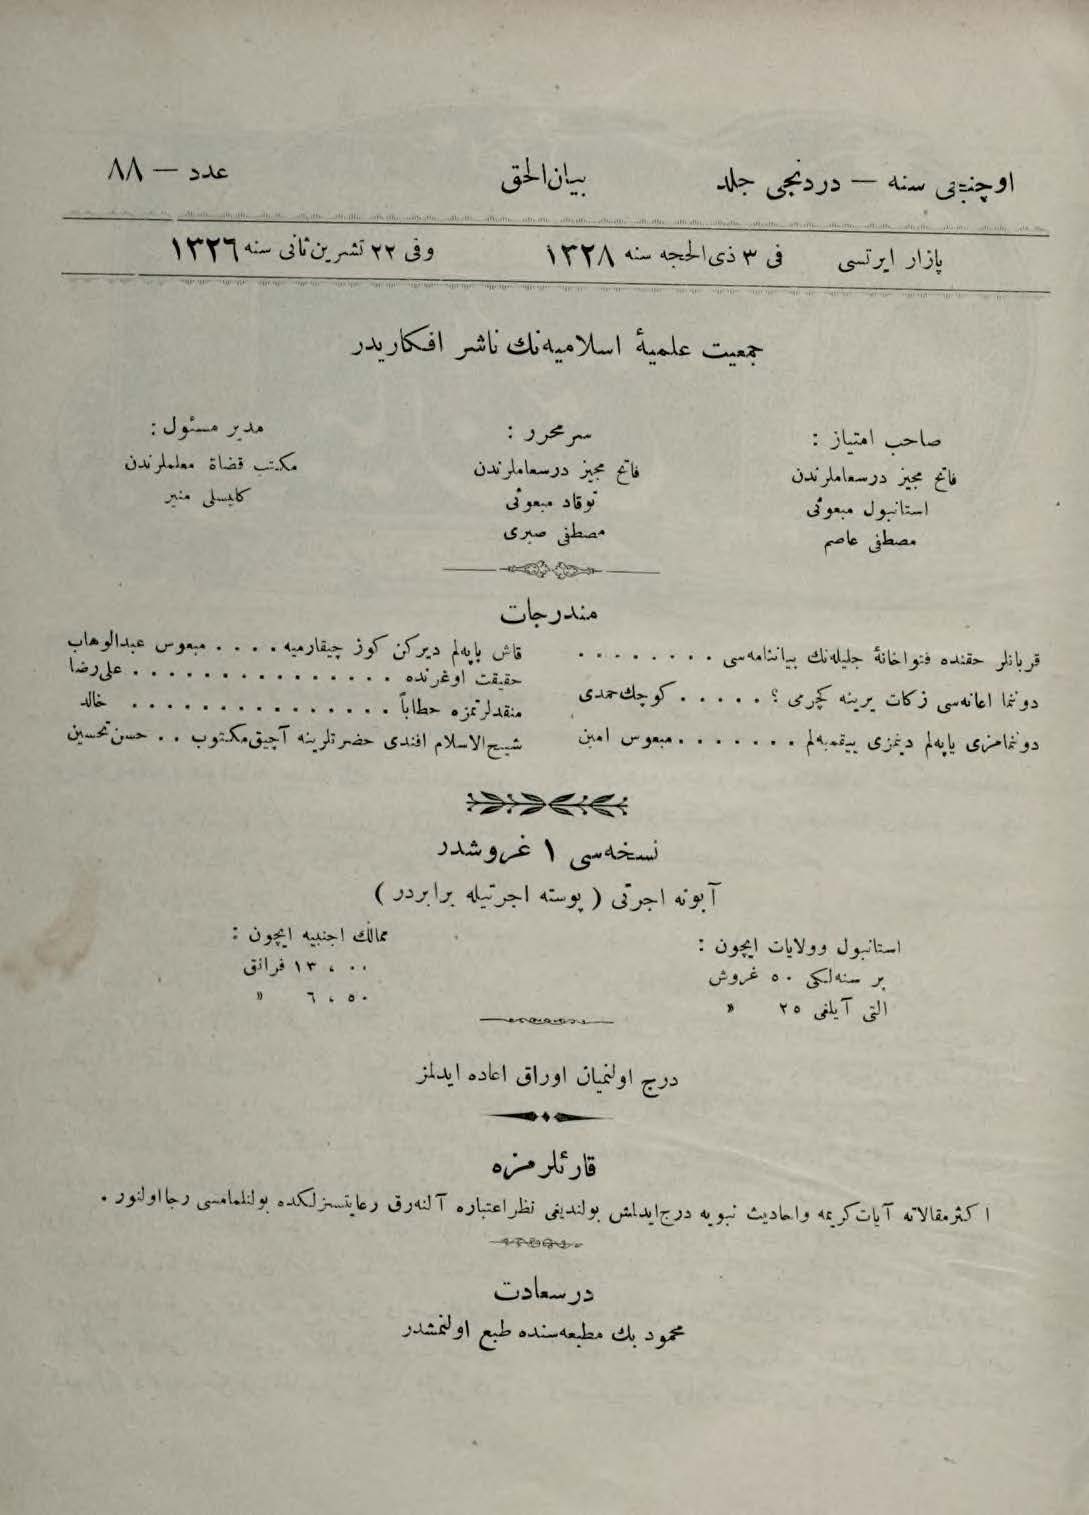 اوچنجی سنه — دردنجی جلد بیان‌الحق عدد — ٨٨
پازار ایرتسی فی ٣ ذی‌الحجه سنه ١٣٢٨ وفی ٢٢ تشرین‌ثانی سنه ١٣٢٦
جمعیت علمیهٔ اسلامیه‌نك ناشر افکاریدر
صاحب امتیاز :
فاتح مجیز درسعاملرندن
استانبول مبعوثی
مصطفی عاصم
سرمحرر :
فاتح مجیز درسعاملرندن
توقاد مبعوثی
مصطفی صبری
مدیر مسئول :
مکتب قضاة معلملرندن
کلیسلی منیر
مندرجات
قربانلر حقنده فتواخانهٔ جلیله‌نك بیاننامه‌سی . . . . . . . .
دوننما اعانه‌سی زکات یرینه کچرمی ؟ . . . . . کوچك حمدی
دوننمامزی یاپه‌لم دینمزی ییقمیه‌لم . . . . . . . مبعوس امین
قاش یاپه‌لم دیرکن کوز چیقارمیه . . . . مبعوس عبدالوهاب
حقیقت اوغرنده . . . . . . . . . . . . . . علی‌رضا
منقدلرتمزه خطاباً . . . . . . . . . . . . . . خالد
شیخ‌الاسلام افندی حضرتلرینه آچیق‌مکتوب . . حسن‌تحسین
نسخه‌سی ١ غروشدر
آبونه اجرتی ( پوسته اجرتیله برابردر )
استانبول وولایات ایچون :
بر سنه‌لکی ٥٠ غروش
التی آیلغی ٢٥ »
ممالك اجنبیه ایچون :
١٣ ، ٠٠ فرانق
٦ ، ٥٠ »
درج اولنمیان اوراق اعاده ایدلمز
قارئلرمزه
اکثرمقالاته آیات‌کریمه واحادیث نبویه درج‌ایدلمش بولندیغی نظراعتباره آلنه‌رق رعایتسزلکده بولنلمامسی رجااولنور .
درسعادت
محمود بك مطبعه‌سنده طبع اولنمشدر